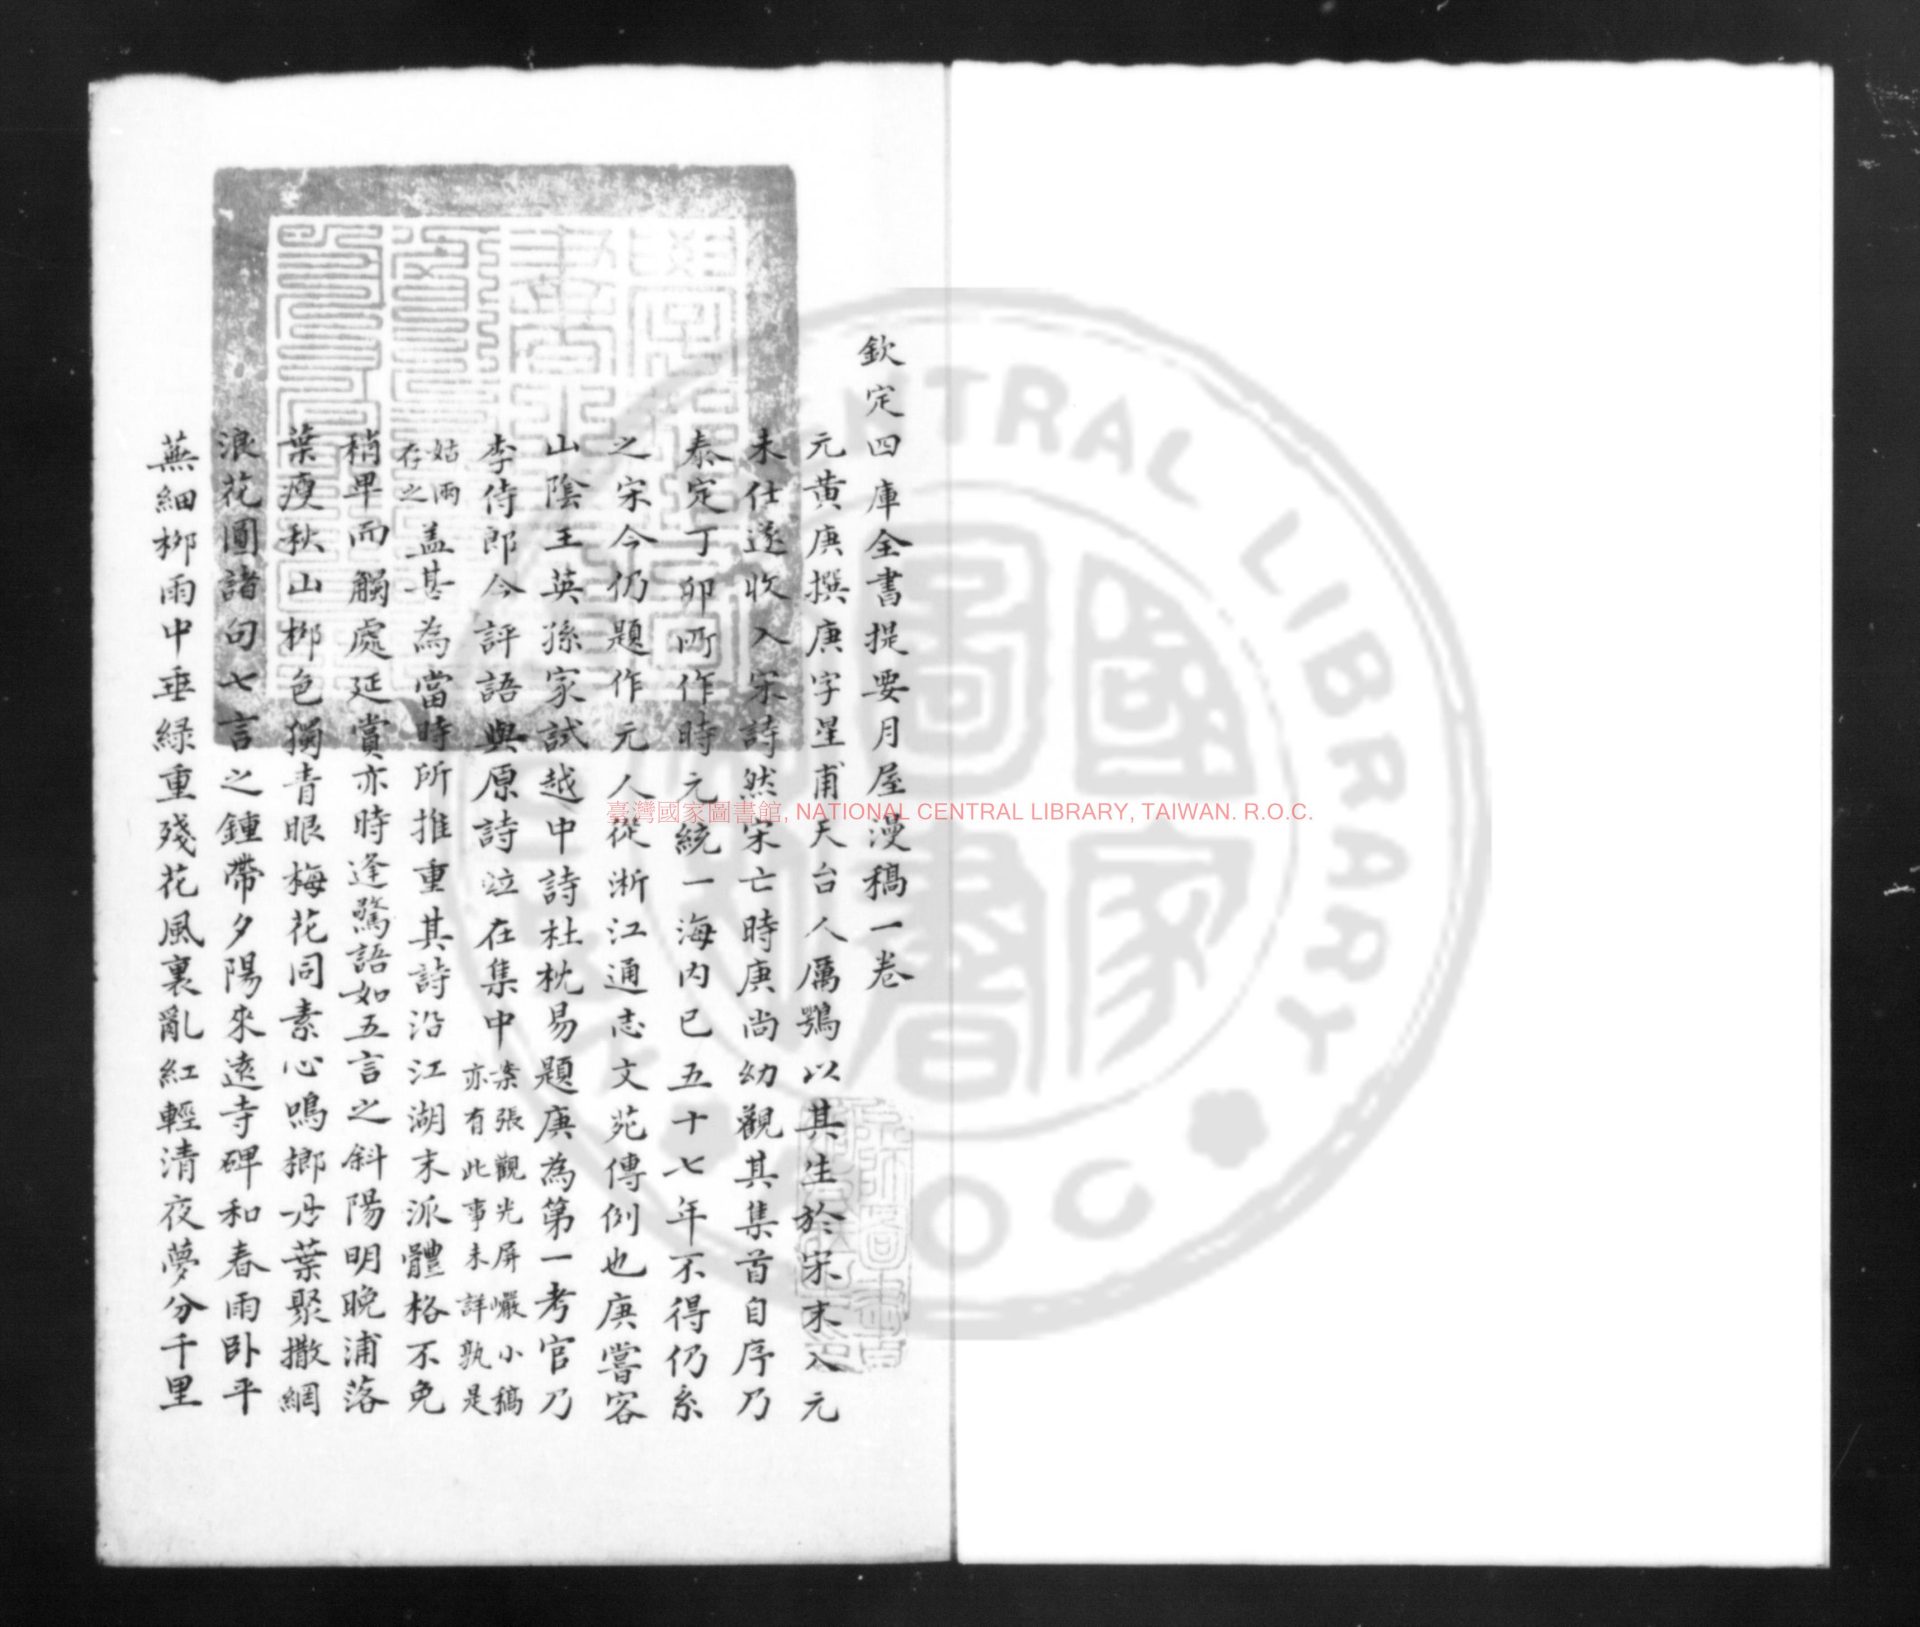 欽定四庫全書提要月屋漫稿一卷
元黄庚撰庚字星甫天台人厲鶚以其生於宋末入元
未仕遂收入宋詩然宋亡時庚尚幼觀其集首自序乃
泰定丁卯所作時元統一海内已五十七年不得仍系
之宋今仍題作元人從浙江通志文苑傳例也庚嘗客
山陰王英孫家試越中詩杜枕易題庚為第一考官乃
李侍郎今評語與原詩竝在集中案張觀光屏巗小稿
亦有此事未詳孰是
姑兩
存之盖甚為當時所推重其詩沿江湖末派體格不免
稍卑而觸處延賞亦時逢驚語如五言之斜陽明晚浦落
葉瘦秋山栁色獨青眼梅花同素心鳴榔丹葉聚撒網
浪花圓諸句七言之鍾帶夕陽來遠寺碑和春雨卧平
蕪細栁雨中垂緑重殘花風裏亂紅輕清夜夢分千里
臺灣國家圖書館, NATIONAL CENTRAL LIBRARY, TAIWAN. R.O.C.